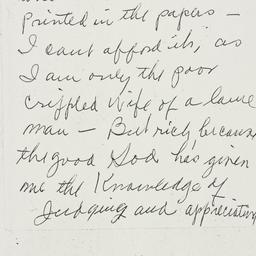 printed in the papers —
I cant afford it, as
I am only the poor
crippled Wife of a lame
man — But rich, because
the good God has given
me the Knowledge of
Judging and appreciating